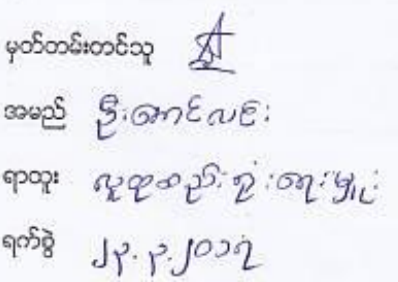 မှတ်တမ်းတင်သူ
အမည် ဦးအောင်လင်း
ရာထူး လူထုစည်းရုံးရေးမှူး
ရက်စွဲ ၂၃.၃.၂၀၁၇